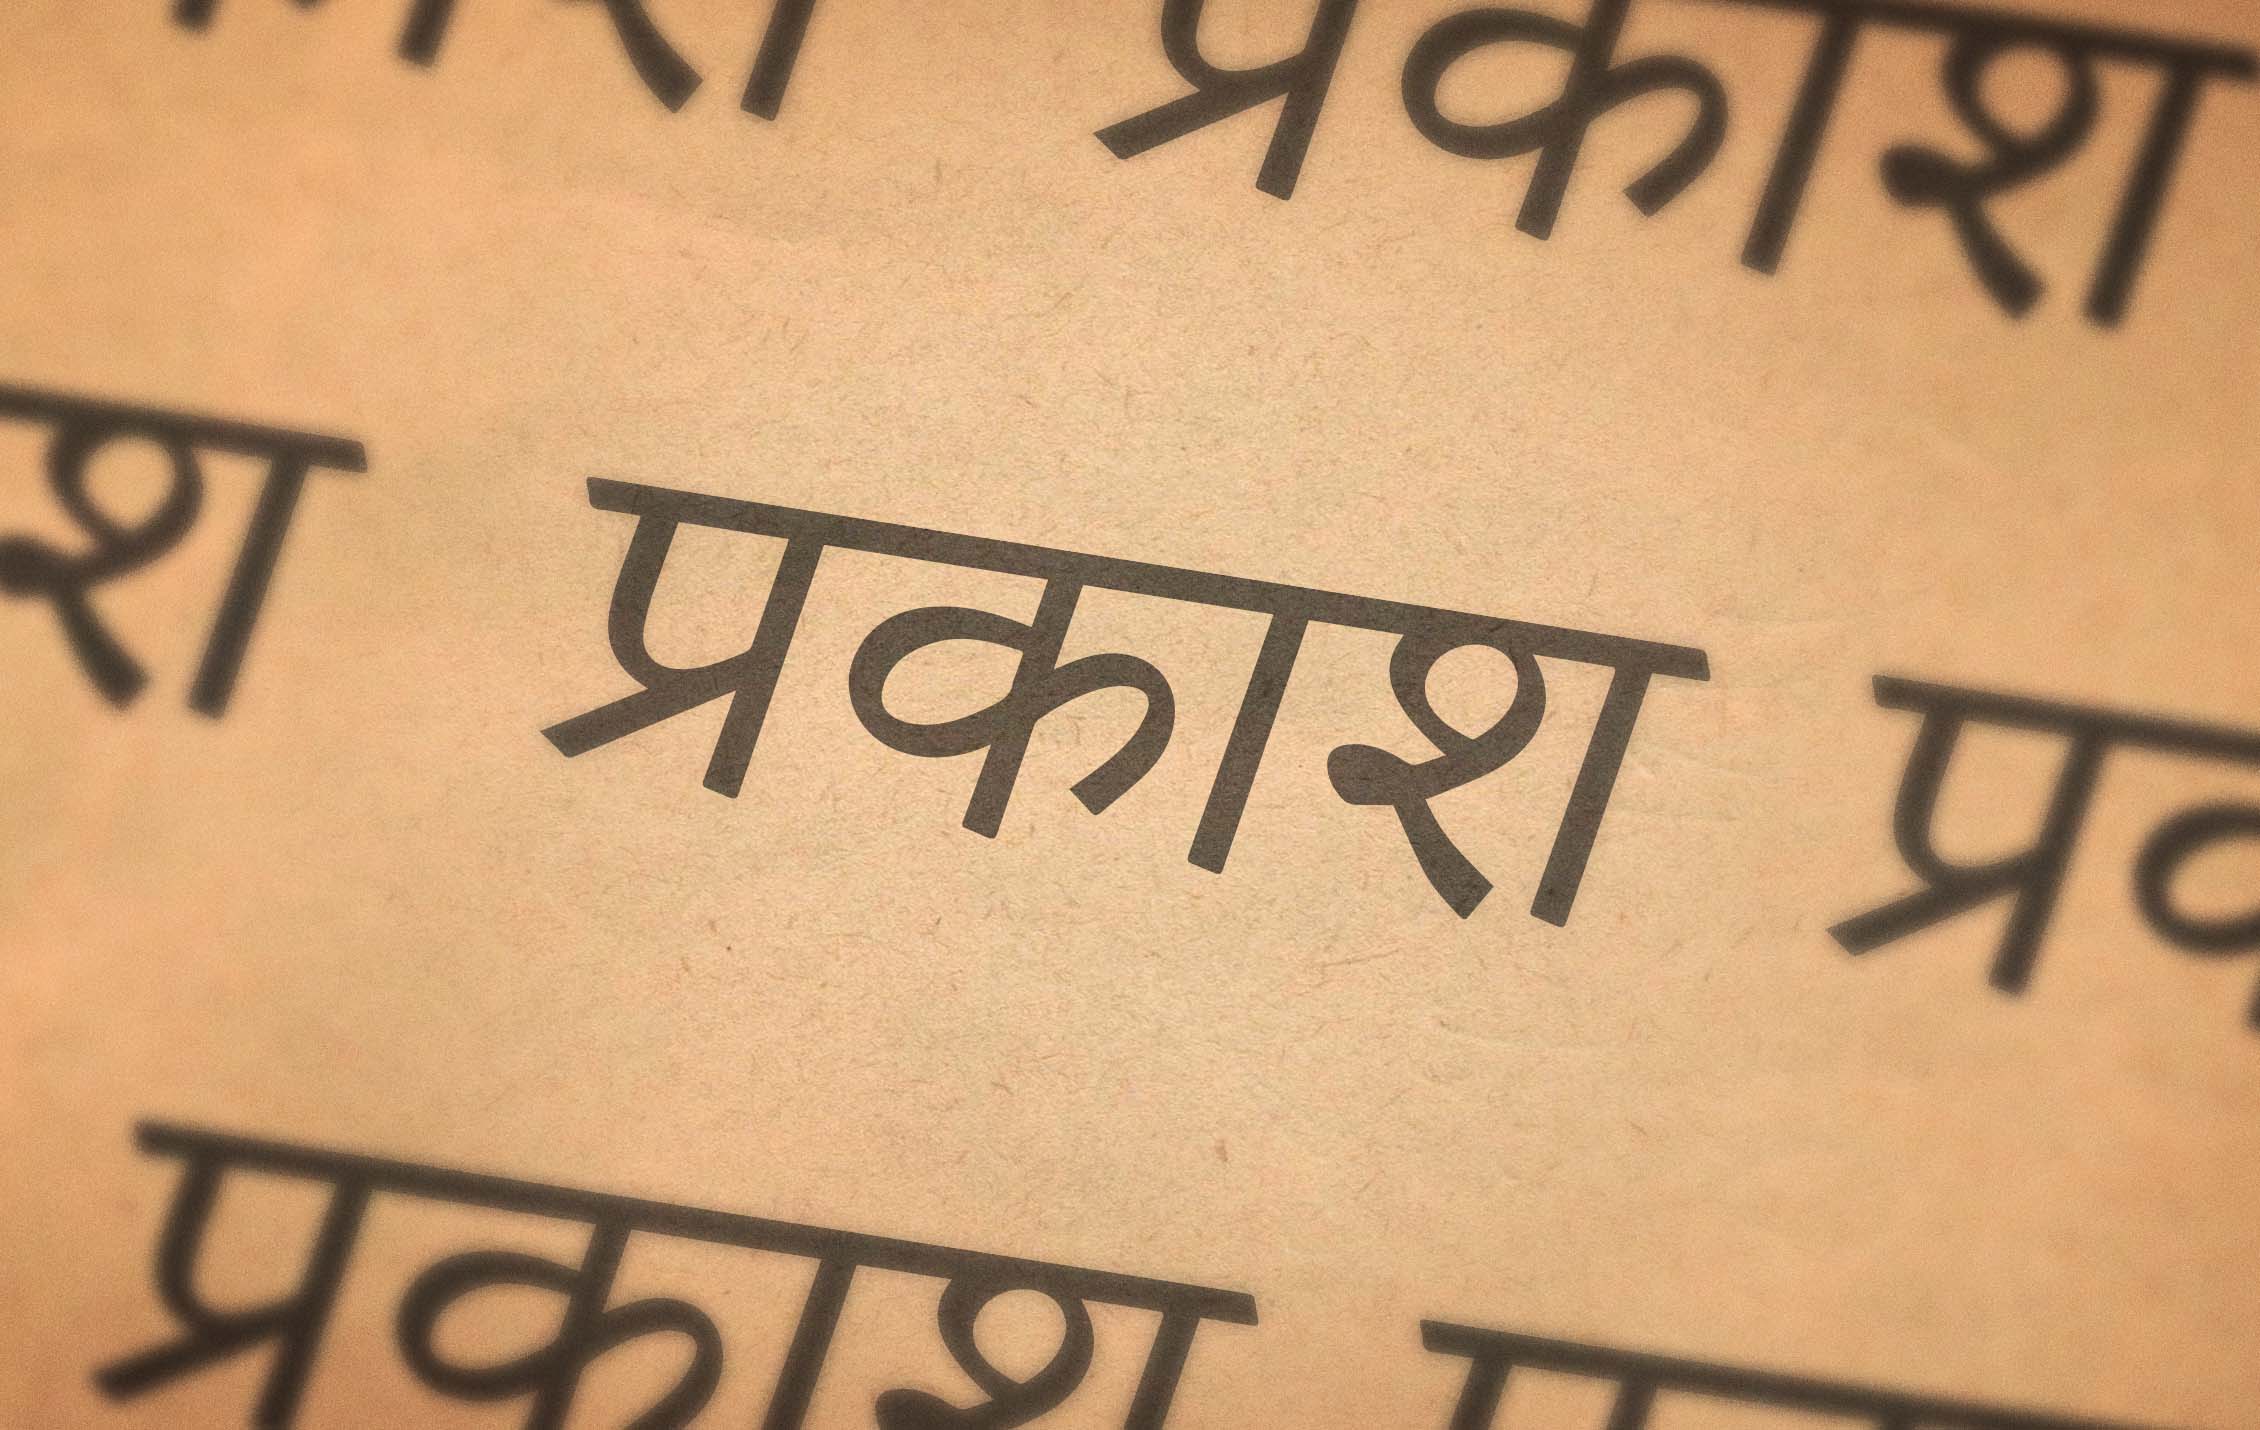 प्रकाश
श प्रकाश प्रक
प्रकाश